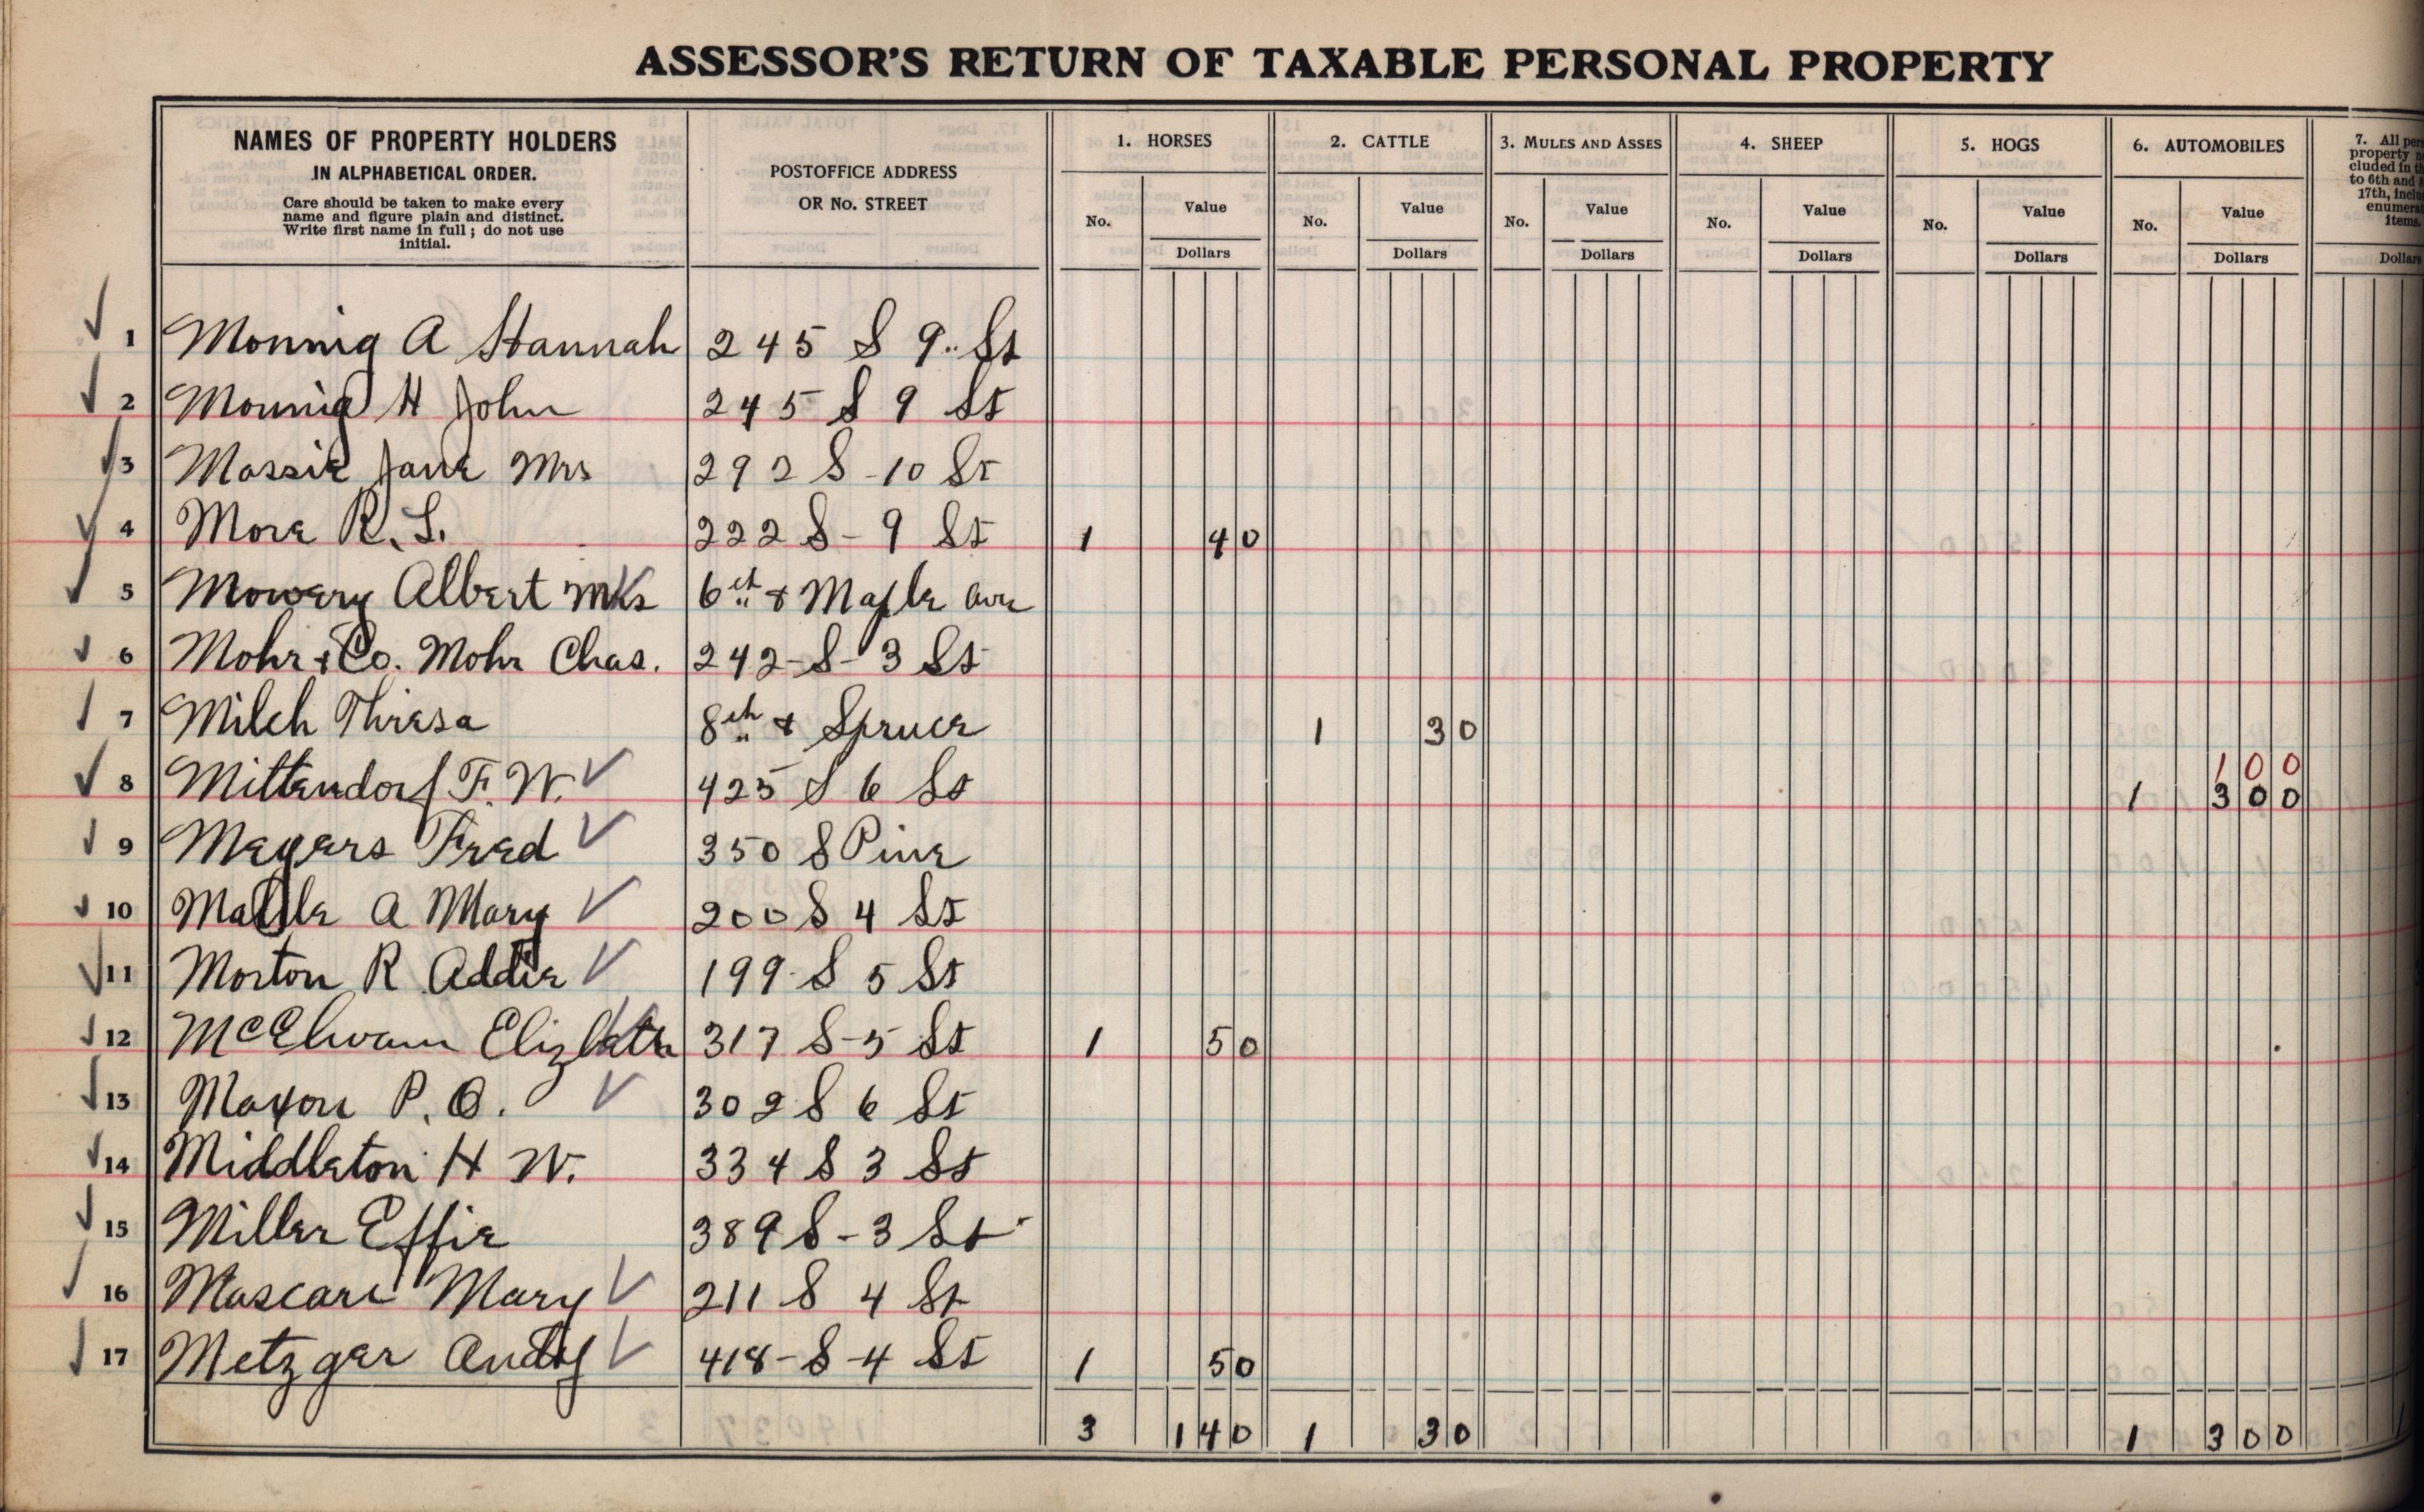 ASSESSOR'S RETURN OF TAXABLE PERSONAL PROPERTY
NAMES OF PROPERTY HOLDERS
IN ALPHABETICAL ORDER.
Care should be taken to make every
name and figure plain and distinct.
Write first name in full; do not use
initial.
POSTOFFICE ADDRESS
OR No. STREET
1. HORSES
No. Value
Dollars
2. CATTLE
No. Value
Dollars
3. MULES AND ASSES
No. Value
Dollars
4. SHEEP
No. Value
Dollars
5. HOGS
No. Value
Dollars
6. AUTOMOBILES
No. Value
Dollars
7. All
property
cluded in
to 6th and
17th,
items.
1 Monnig A Hannah 245 S 9 St
2 Monnig H John 245 S 9 St
3 Massie Jane Mrs 292 S-10 St
4 More R. L. 222 S-9 St 1 40
5 Mowery Albert Mrs 6th & Maple ave
6 Mohr & Co. Mohr Chas. 242-S-3 St
7 Milch Thresa 8th & Spruce 1 30
100
8 Mittendorf F. W. 425 S 6 St 1 300
9 Meyers Fred 350 S Pine
10 A Mary 200 S 4 St
11 Morton R Addie 199 S 5 St
12 McElwain 317 S-5 St 1 50
13 Maxon P. O. 302 S 6 St
14 Middleton H W. 334 S 3 St
15 Miller Effie 389 S-3 St
16 Mascari Mary 211 S 4 St
17 Metzger Andy 418-S-4 St 1 50
3 140 1 30 1 300